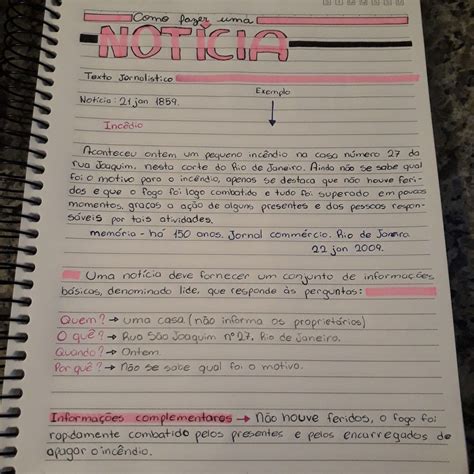 Como fazer uma
NOTÍCIA
Texto Jornalístico
Exemplo
Notícia: 21 jan 1859.
Incêdio
Aconteceu ontem um pequeno incêndio na casa número 27 da
rua Joaquim, nesta corte do Rio de Janeiro. Ainda não se sabe qual
foi o motivo para o incêndio, apenas se destaca que não houve feri-
dos e que o fogo foi logo combatido e tudo foi superado em poucos
momentos, graças a ação de alguns presentes e das pessoas respon-
sáveis por tais atividades.
memória - há 150 anos. Jornal commércio. Rio de Janeira
22 jan 2009.
Uma notícia deve fornecer um conjunto de informações
básicas, denominado lide, que responde às perguntas:
Quem? → uma casa (não informa os proprietários)
O quê? → Rua São Joaquim nº 27, Rio de Janeiro.
Quando? → Ontem.
Por quê? → Não se sabe qual foi o motivo.
Informações complementares → Não houve feridos, o fogo foi
rapidamente combatido pelos presentes e pelos encarregados de
apagar o incêndio.